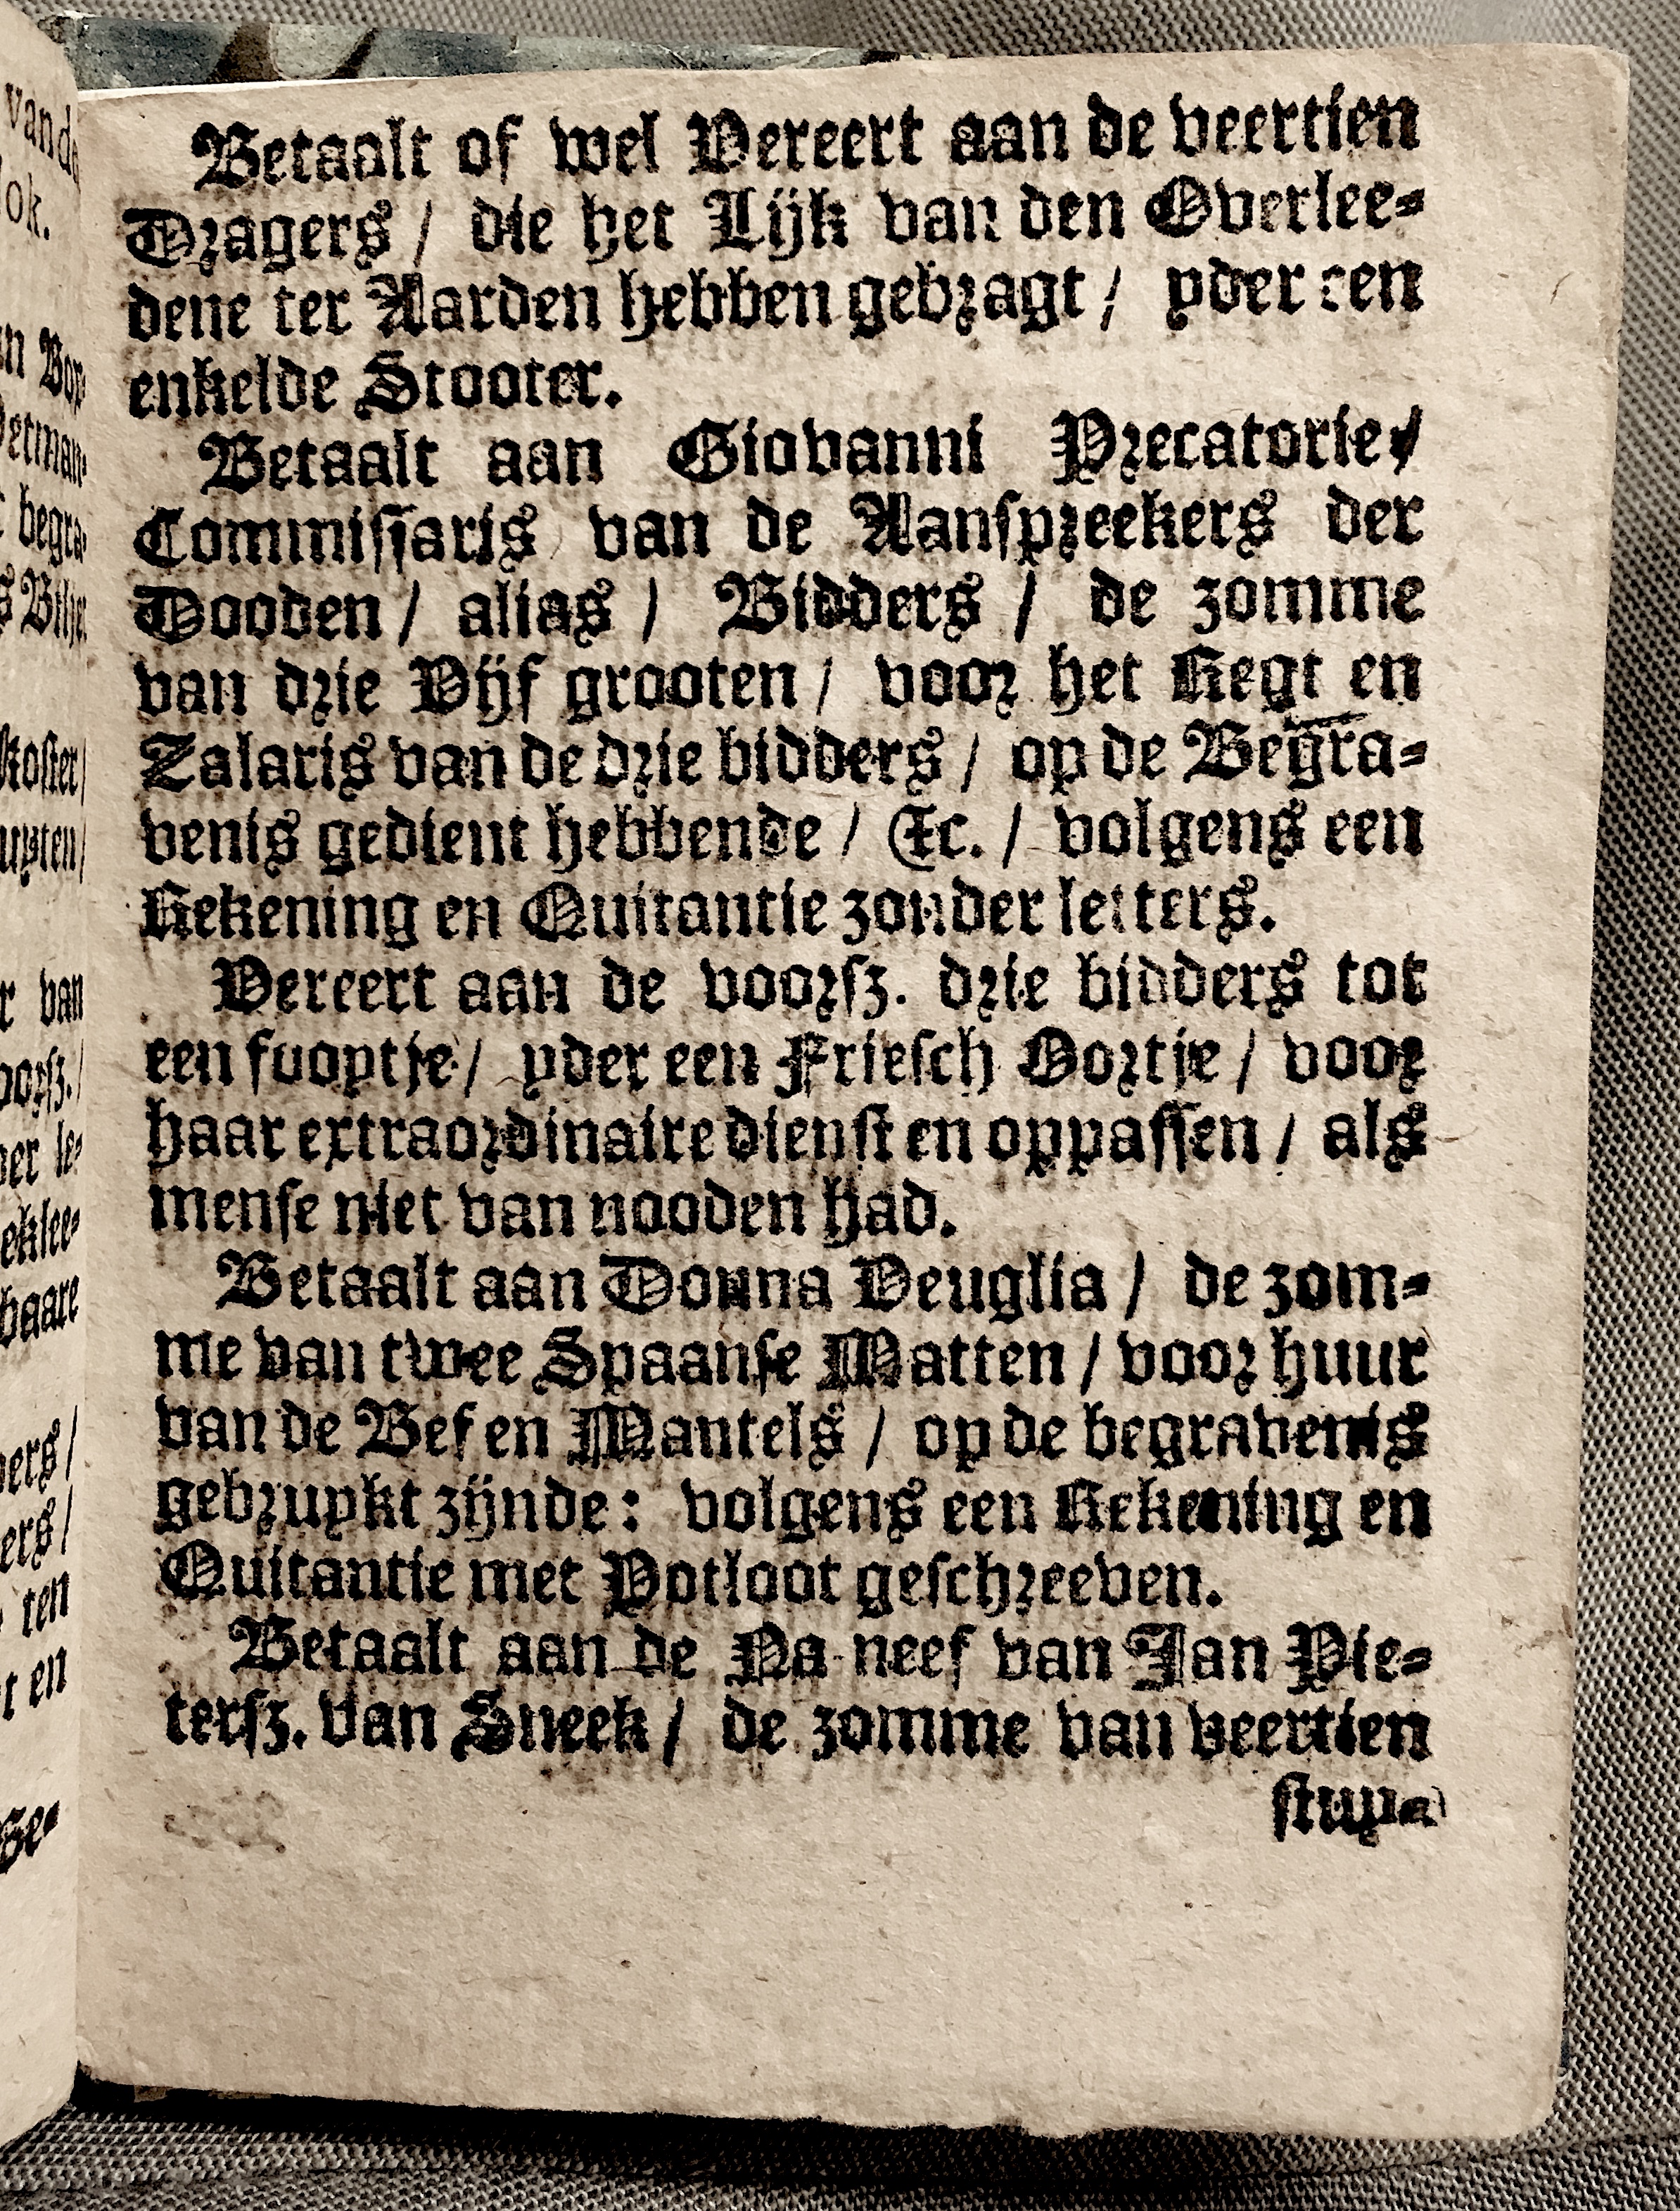 Betaalt of wel Vereert aan de veertien
Dragers / die het Lijk van den Overlee-
dene ter Aarden hebben gebragt / yder een
enkelde Stooter.
Betaalt aan Giovanni Precatorie /
Commissaris van de Aanspreekers der
Dooden / alias / Bidders / de zomme
van drie Vijf grooten / voor het Regt en
Zalaris van de drie bidders / op de Begra-
venis gedient hebbende / &c. / volgens een
Rekening en Quitantie zonder letters.
Vereert aan de voorsz. drie bidders tot
een fooytje / yder een Friesch Oortje / voor
haar extraordinaire dienst en oppassen / als
mense niet van nooden had.
Betaalt aan Donna Veuglia / de zom-
me van twee Spaanse Matten / voor huur
van de Bef en Mantels / op de begravenis
gebruykt zijnde: volgens een Rekening en
Quitantie met Potloot geschreeven.
Betaalt aan de Na-neef van Jan Pie-
tersz. van Sneek / de zomme van veertien